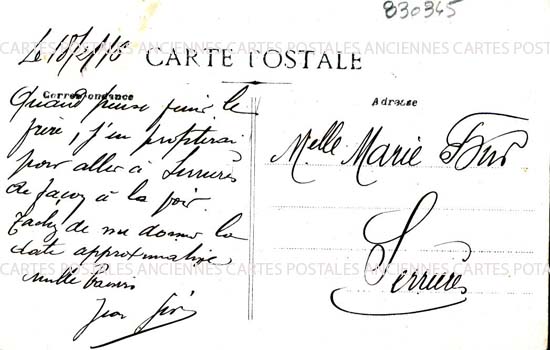 830345
Le 18/2/16
CARTE POSTALE
Correspondance
Adresse
Quand pense finir le
frère, j'en profiterai
pour aller à Serrières
de façon à la voir.
Tachez de me donner la
date approximative
Mille baisers
Jean
Melle Marie
Serrières
CARTES POSTALES ANCIENNES CARTES POSTALES ANCIENNES CARTES POSTALES
CARTES POSTALES ANCIENNES CARTES POSTALES ANCIENNES CARTES POSTALES